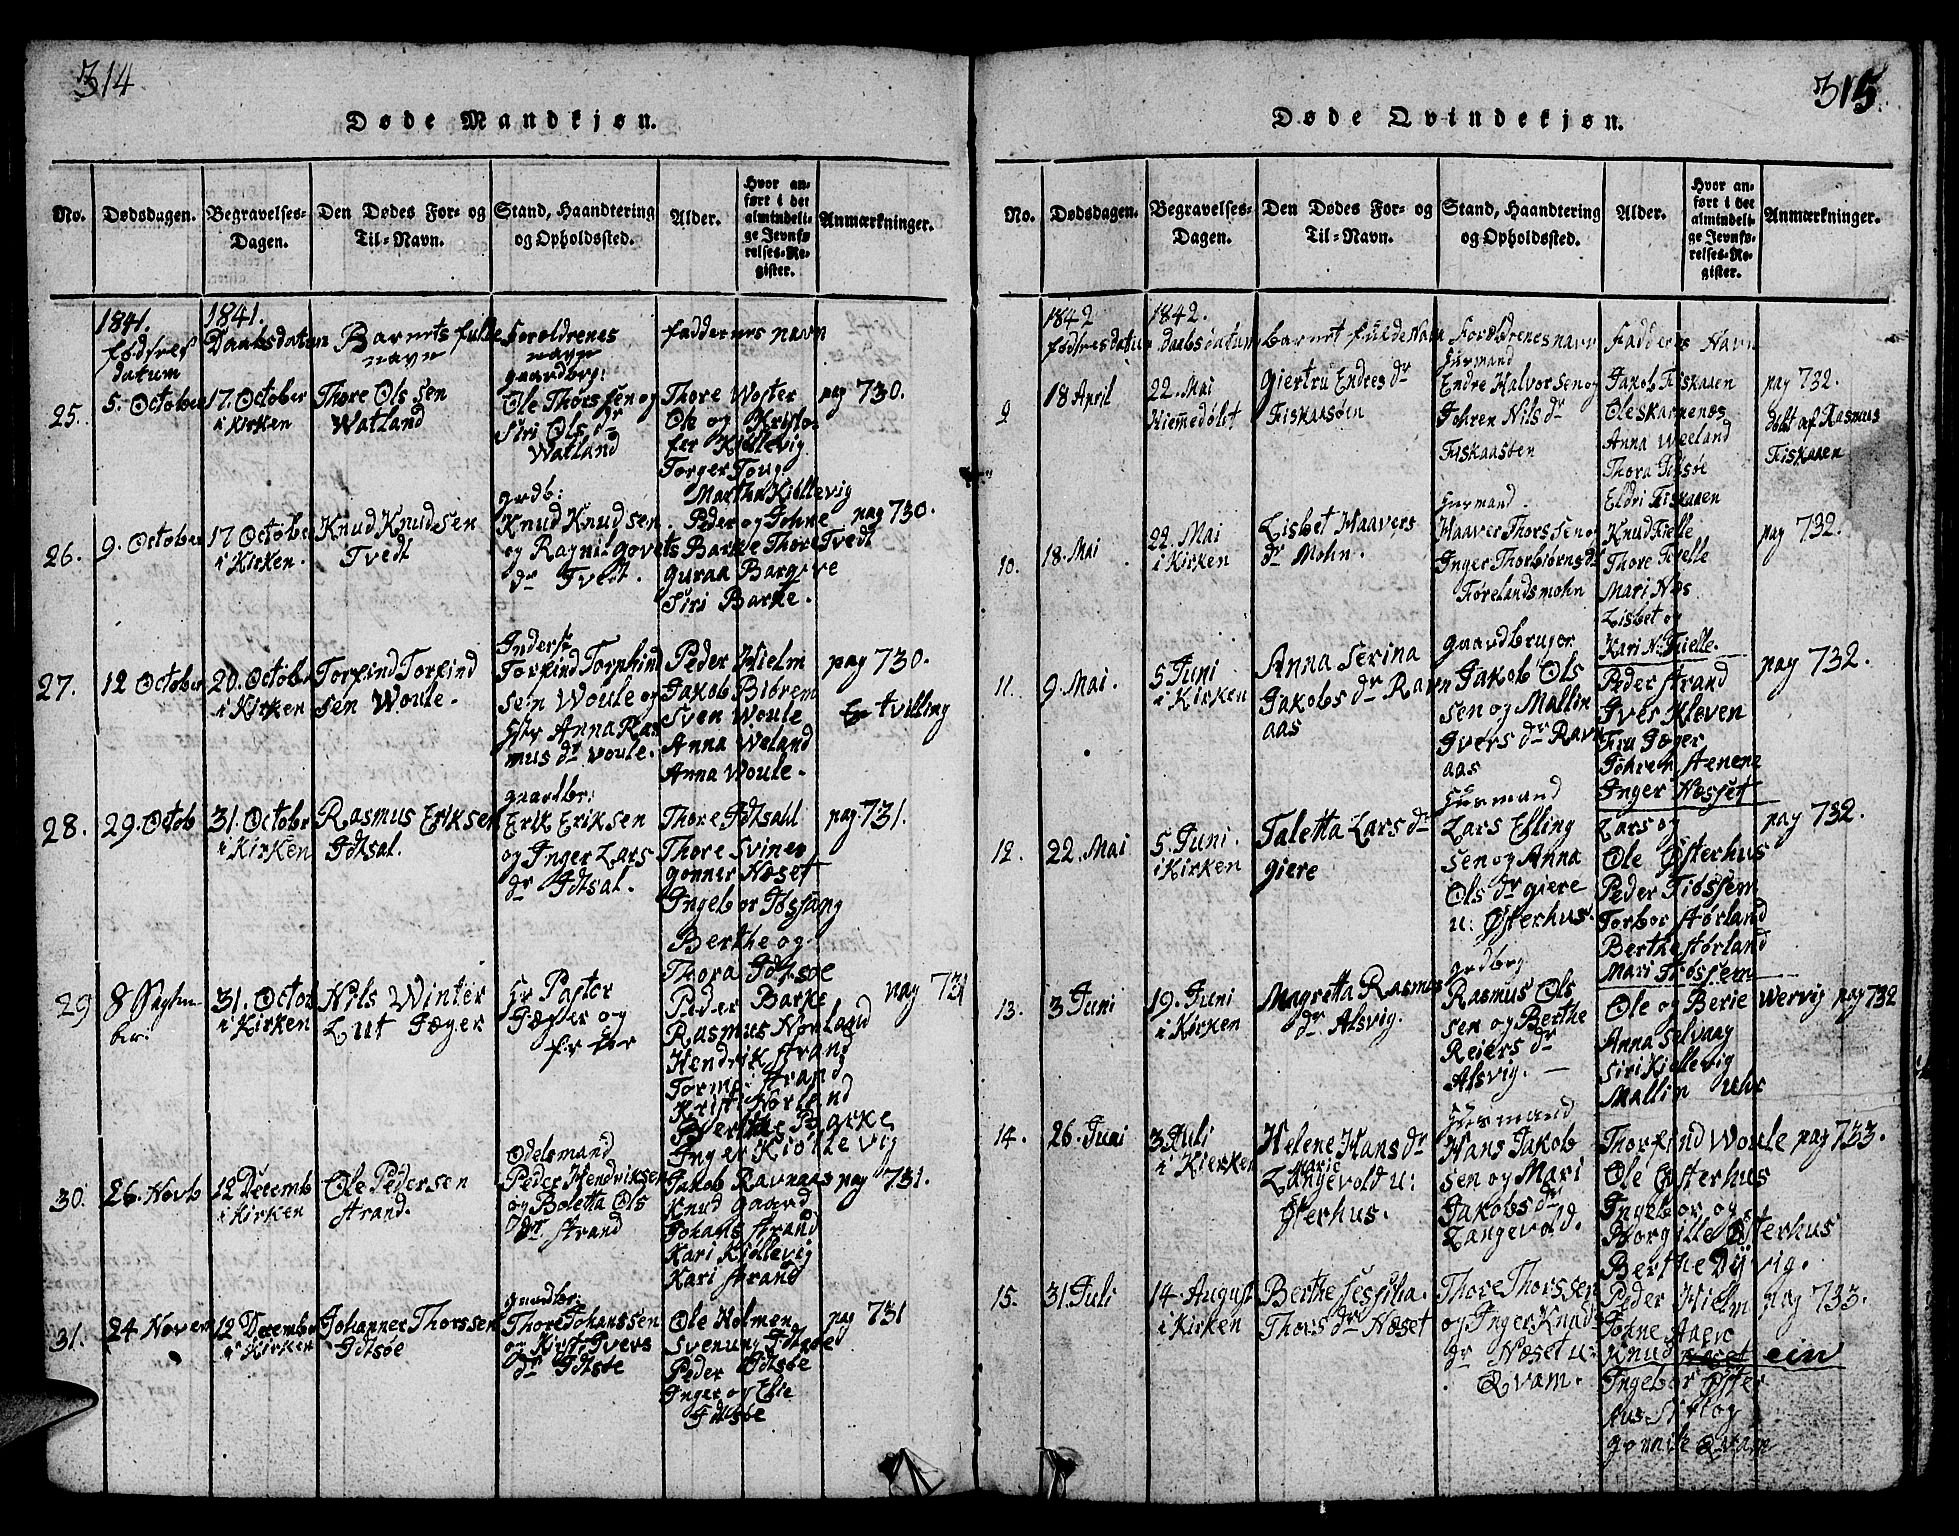 314
Døde Mandkjøn.
No.
Dødsdagen.
Begravelses-
Dagen.
Den Dødes For- og
Til-Navn.
Stand, Haandtering
og Opholdssted.
Alder.
Hvor an-
ført i det
almindeli-
ge Jevnfø-
relses-Re-
gister.
Anmærkninger.
1841.
fødsels
datum
1841.
Daabsdatum
Barnets fulle
navn
Foroldrenes
navn
faddernes navn
25.
5. October
17. October
i Kirken
Thore Ols sen
Watland
gaardbrg:
Ole Thorssen og
Siri Ols dr
Watland
Thore Woster
Ole og Kristo-
fer Kiøllevig
Torger Toug
Martha Kiøllevig
pag 730.
26.
9. October
17 October
i Kirken.
Knud Knudsen
Tvedt
grdb:
Knud Knudsen
og Ragnil Govets
dr Tvert.
Peder og Johne
Barke Thore Tvedt
Guraa Bargeve
Siri Barke.
pag 730.
27.
12 October
20. October
i Kirken
Torfind Torfind
sen Woule.
Inderse
Torfind Torfind
sen Woule og
Anna Ras
mus dr Woule.
Peder Hielm
Jakob Biørem
Sven Woule
Anna Weland
Anna Woule.
pag 730.
En tvilling
28.
29. Octob
31. October
i Kirken
Rasmus Eriksen
Idsal.
gaardbr:
Erik Eriksen
og Inger Lars
dr Idsal.
Thore Idsahl
Thore Svines
Gonner Næset
Ingebor Tøssang
Berthe og
Thora Idsøe
pag 731.
29
8 Septem
ber.
31. Octob
i Kirken
Nils Winter
Lut Jæger
Hr Pastor
Jæger og
Peder Barke
Rasmus Norland
Hendrik Strand
Torme Strand
Krist Norland
Berthe Barke
Inger Kiøllevig
pag 731
30.
26. Novb
12 Decemb
i Kirken
Ole Pedersen
Strand.
Odelsmand
Peder Hendriksen
og Boletta Ols
dr. Strand
Jakob Ravnaas
Knud Gaard
Johans Strand
Kari Kiøllevig
Kari Strand
pag 731.
31.
24 Novem
12 Decemb
i Kirken
Johannes Thorssen
Idsøe
gaardbr:
Thore Johanssen
og Kirst. Ivers
dr Idsøe
Ole Holmen
Svenung Idsøe
Peder Idsøe
Inger og Elie
Idsøe
pag 731
315.
Døde Qvindekjøn.
No.
Dødsdagen.
Begravelses-
Dagen.
Den Dødes For- og
Til-Navn.
Stand, Haandtering
og Opholdssted.
Alder.
Hvor an-
ført i det
almindeli-
ge Jevnfø-
relses-Re-
gister.
Anmærkninger.
1842
fødselsdatum
1842.
daabsdatum
Barnet fuldenavn
Foreldrenes navn
Fadderes Navn
9
18 April
22. Mai
Hiemedøbt
Giertru Endres dr
Fiskaasen
Husmand
Endre Halvorsen og
Johren Nils dr
Fiskaasen
Jakob Fiskaaen
Ole Skarnenæs
Anna Weeland
Thora Idsøe
Eldri Fiskaaen
pag 732.
døbt af Rasmus
Fiskaaen
10.
18. Mai
22. Mai
i Kirken
Lisbet Haavers
dr Mohn.
Husmand
Haaver Thorssen og
Inger Thorbiørns dr
Førelandsmohn
Knud Fielle
Thore Fielle
Mari Nøs
Lisbet og
Kari N. Fielle.
pag 732.
11.
9. Mai.
5. Juni
i Kirken
Anna Serina
Jakobs dr Ravn
aas
Gaardbruger
Jakob Ols
sen og Mallin
Ivers dr Ravn
aas
Peder Strand
Iver Kleven
Fru Jæger
Johren Stenene
Inger Næsset
pag 732.
12.
22. Mai
5. Juni.
i Kirken
Taletta Lars dr
Giere
Husmand
Lars Elling
sen og Anna
Ols dr Giere
u: Østerhus.
Lars og
Ole Østerhus
Peder Tiøssem
Torbor Størland
Berthe Størland
Mari Tiøssem
pag 732.
13.
3 Juni
19. Juni
i Kirken
Magretta Rasmus
dr. Alsvig.
grdbrg
Rasmus Ols
sen og Berthe
Reiers dr
Alsvig.
Ole og Berie Wervig
Anna Selvaag
Siri Kiøllevig
Mallin
pag 732
14.
26. Juni
3 Juli
i Kierken
Helene Hans dr
Marie
Langevold u:
Østerhus.
Husmand
Hans Jakob
sen og Mari
Jakobs dr
Langevold.
Thorfind Woule
Ole Østerhus
Ingebor og
Borgille Østerhus
Berthe Dyvig.
pag 733.
15.
31. Juli
14. August
i Kirken
Berthe Sesselia.
Thors dr Næset
Thore Thorssen
og Inger Knuds
dr Næset u:
Qvam.
Peder Hielm
Johne
Knud Eiin
Ingebor Øster
hus og
Gonnile Qvam
pag 733.